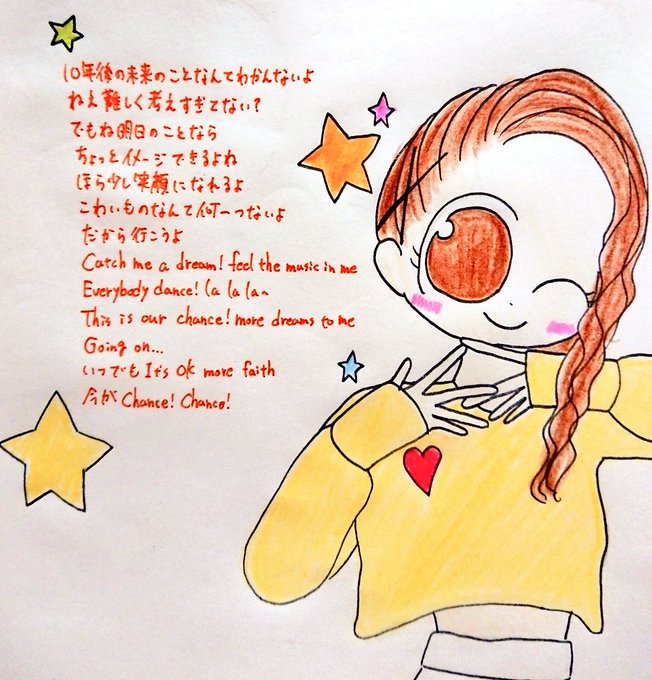 10年後の未来のことなんてわかんないよ
ねえ難しく考えすぎてない?
でもね明日のことなら
ちょっとイメージできるよね
ほら少し笑顔になれるよ
こわいものなんて何一つないよ
だから行こうよ
Catch me a dream! feel the music in me
Everybody dance! la la la~
This is our chance! more dreams to me
Going on...
いつでも It's OK more faith
今が Chance! Chance!